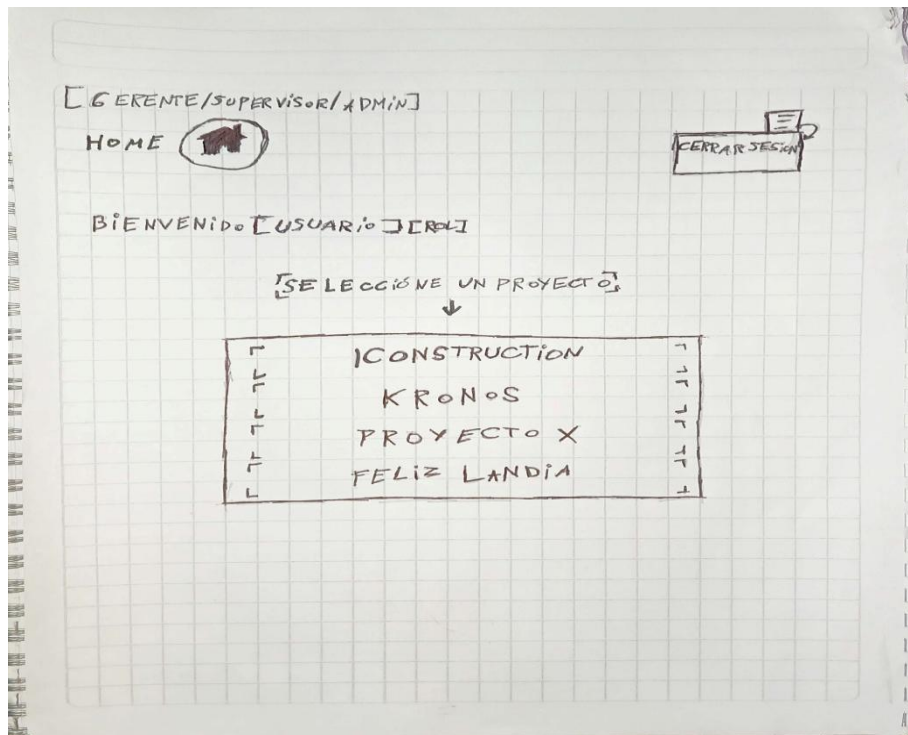 [GERENTE/SUPERVISOR/ADMIN]
HOME
CERRAR SESION
BIENVENIDO [USUARIO] [ROL]
[SELECCIÓNE UN PROYECTO]
ICONSTRUCTION
KRONOS
PROYECTO X
FELIZ LANDIA